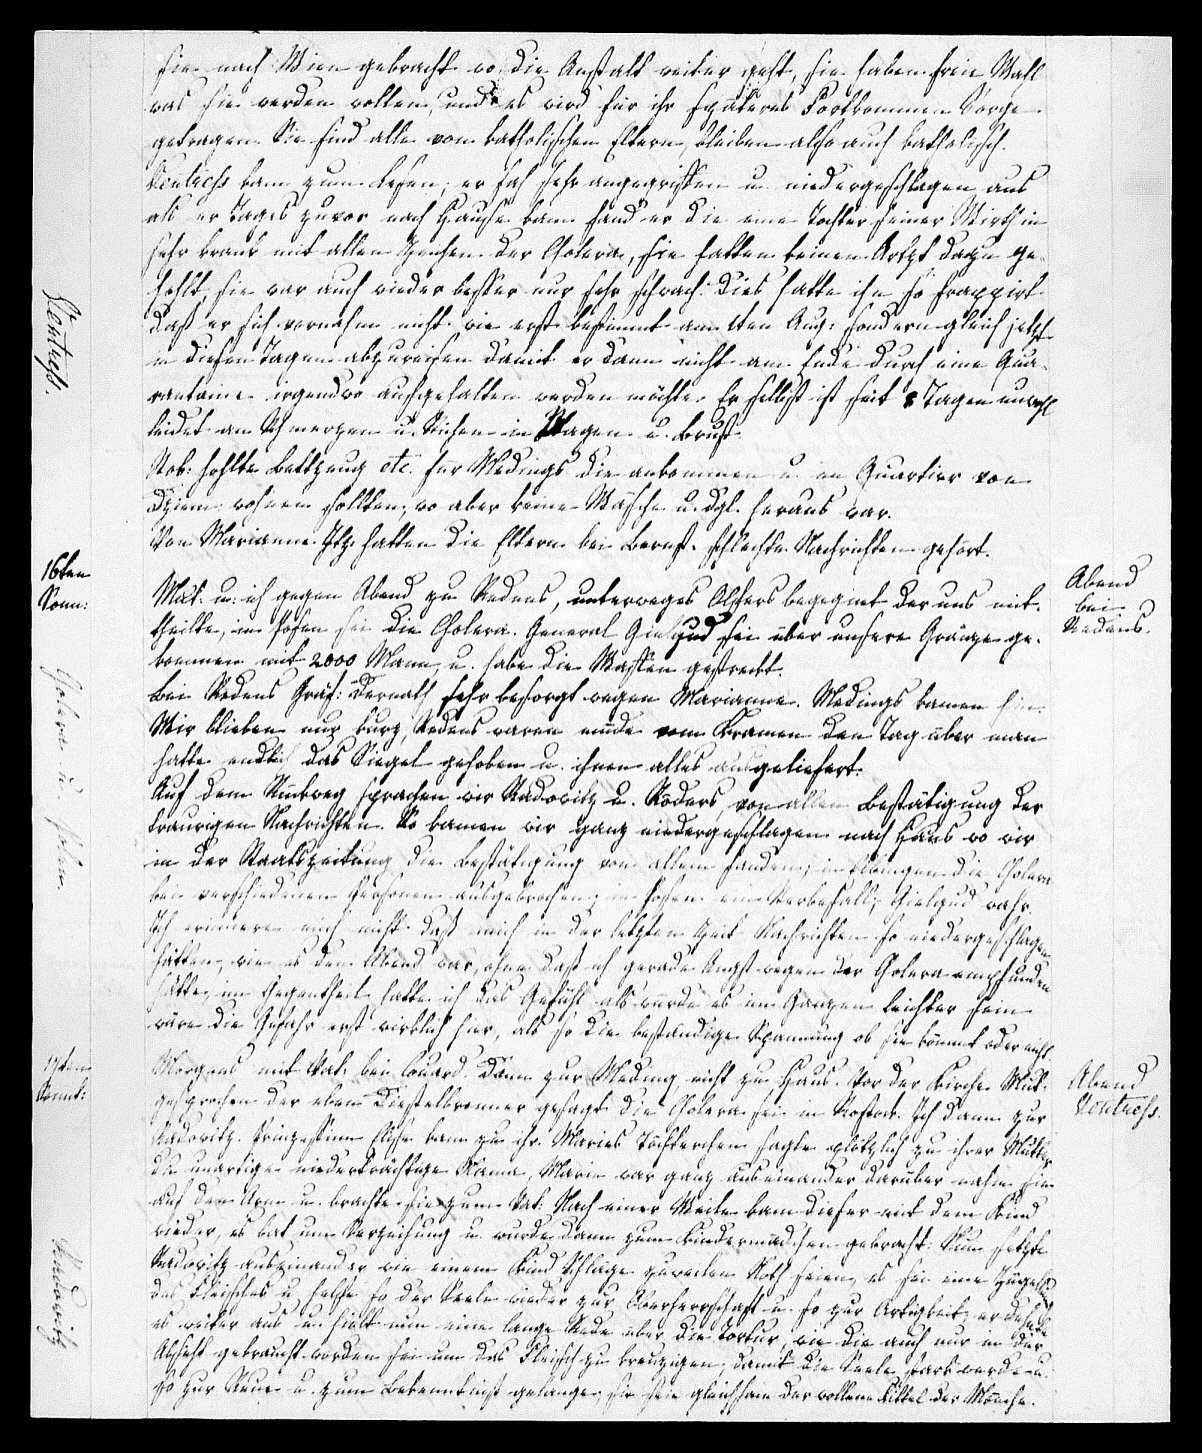 sie nach Wien gebracht wo die Anstalt weiter geht, sie haben freie Wahl
was sie werden wollen, und es wird für ihr späteres Fortkommen Sorge
getragen. Sie sind alle von katholischen Eltern, bleiben also auch katholisch.
Ventress kam zum Lesen; er sah sehr angegriffen u. niedergeschlagen aus
als er Tages zuvor nach Hause kam fand er die eine Tochter seiner Wirthin
sehr krank mit allen Zeichen der Cholera, sie hatten keinen Artzt dazu ge-
hohlt, sie war auch wieder besser nur sehr schwach. Dies hatte ihn so frappirt
daß er sich vornahm nicht wie erst bestimmt am 1ten Aug: sondern gleich jetzt
in diesen Tagen abzureisen damit er dann nicht am Ende durch eine Qua-
rantaine irgendwo aufgehalten werden möchte. Er selbst ist seit 8 Tagen unwohl
leidet an Schmerzen u. Stichen in Magen u. Brust.
Rob: hohlte Bettzeug etc. für Medings die ankommen u. im Quartier von
wohnen sollten, wo aber keine Wäsche u. dgl. heraus war.
Von Marianne Itz. hatten die Eltern bei Bernst. schlechte Nachrichten gehört.
16ten
Sonn:
Abend
bei
Redens.
Mut: u. ich gegen Abend zu Redens, unterweges Alters begegnet der uns mit-
theilte, in Posen sei die Cholera. General Gielgud sei über unsere Gränze ge-
kommen mit 2000 Mann u. habe die Waffen gestreckt.
Bei Redens Gräf: Bernath sehr besorgt wegen Marianne. Medings kamen hin.
Wir blieben nur kurz, Redens waren müde vom Kramen den Tag über man
hatte endlich das Siegel gehoben u. ihnen alles ausgeliefert.
Auf dem Rückweg sprachen wir Radowitz u. Röders, von allen Bestätigung der
traurigen Nachrichten. So kamen wir ganz niedergeschlagen nach Haus wo wir
in der Staatszeitung die Bestätigung von allem fanden; in Elbingen die Cholera
bei verschiedenen Personen ausgebrochen; in Posen ein Sterbefall; Gielgud wahr.
Ich erinnere mich nicht daß mich in der letzten Zeit Nachrichten so niedergeschlagen
hätten, wie es den Abend war, ohne daß ich gerade Angst wegen der Cholera empfunden
hätte, im Gegentheil hatte ich das Gefühl als würde es im Ganzen leichter sein
wäre die Gefahr erst wirklich hier, als so die beständige Spannung ob sie kömmt oder nicht.
17ten
Sonnt:
Abend
Ventress.
Morgens mit Vat: bei Couard. Dann zur Meding, nicht zu Haus. Vor der Kirche Mut:
gesprochen der eben Diestelbrenner gesagt die Cholera sei in Rostock. Ich dann zur
Radowitz. Prinzessinn Elise kam zu ihr. Maries Töchterchen sagte plötzlich zu ihrer Mutter
du unartige niederträchtige Mama, Marie war ganz auseinander darüber nahm sie
auf den Arm u. brachte sie zum Vat: Nach einer Weile kam dieser mit dem Kind
wieder, es bat um Verzeihung u. wurde dann zum Kindermädchen gebracht. Nun setzte
Radowitz auseinander wie einem Kind Schläge zuweilen Noth seien, es sei eine Züchtg
des Fleisches u. helfe so der Seele wieder zur Oberherrschaft u. so zur Artigkeit; er dehnte
es weiter aus u. hielt nun eine lange Rede über die Tortur, wie die auch nur in der
Absicht gebraucht worden sei um das Fleisch zu kreuzigen, damit die Seele stark werde u.
so zur Reue u. zum Bekenntniß gelange, sie sei gleichsam der wollene Kittel der Mönche.
Ventress.
Cholera u.
Radowitz